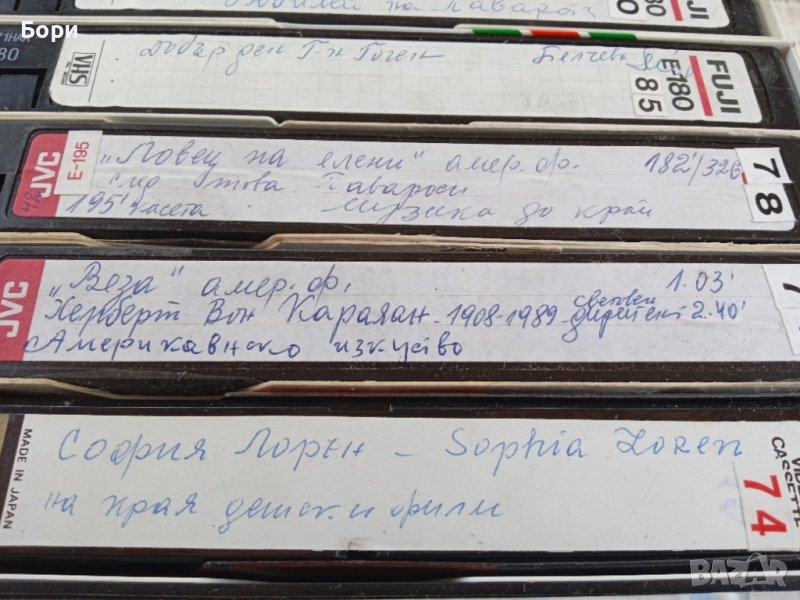 Бори
на Павароти
80
FUJI
Добър ден Г-н Гоген
Белчева
VHS
E-180
FUJI
85
JVC
E-195
„Ловец на елени" амер. ф. 182'/326
след това Павароти
195' касета музика до край
78
JVC
„Веза" амер. ф. 1.03'
Херберт Вон Караян - 1908-1989 световен диригент 2.40'
Американско изкуство
MADE IN JAPAN
София Лорен - Sophia Loren
на края детски филм
CASSETTE
74
BAZAR